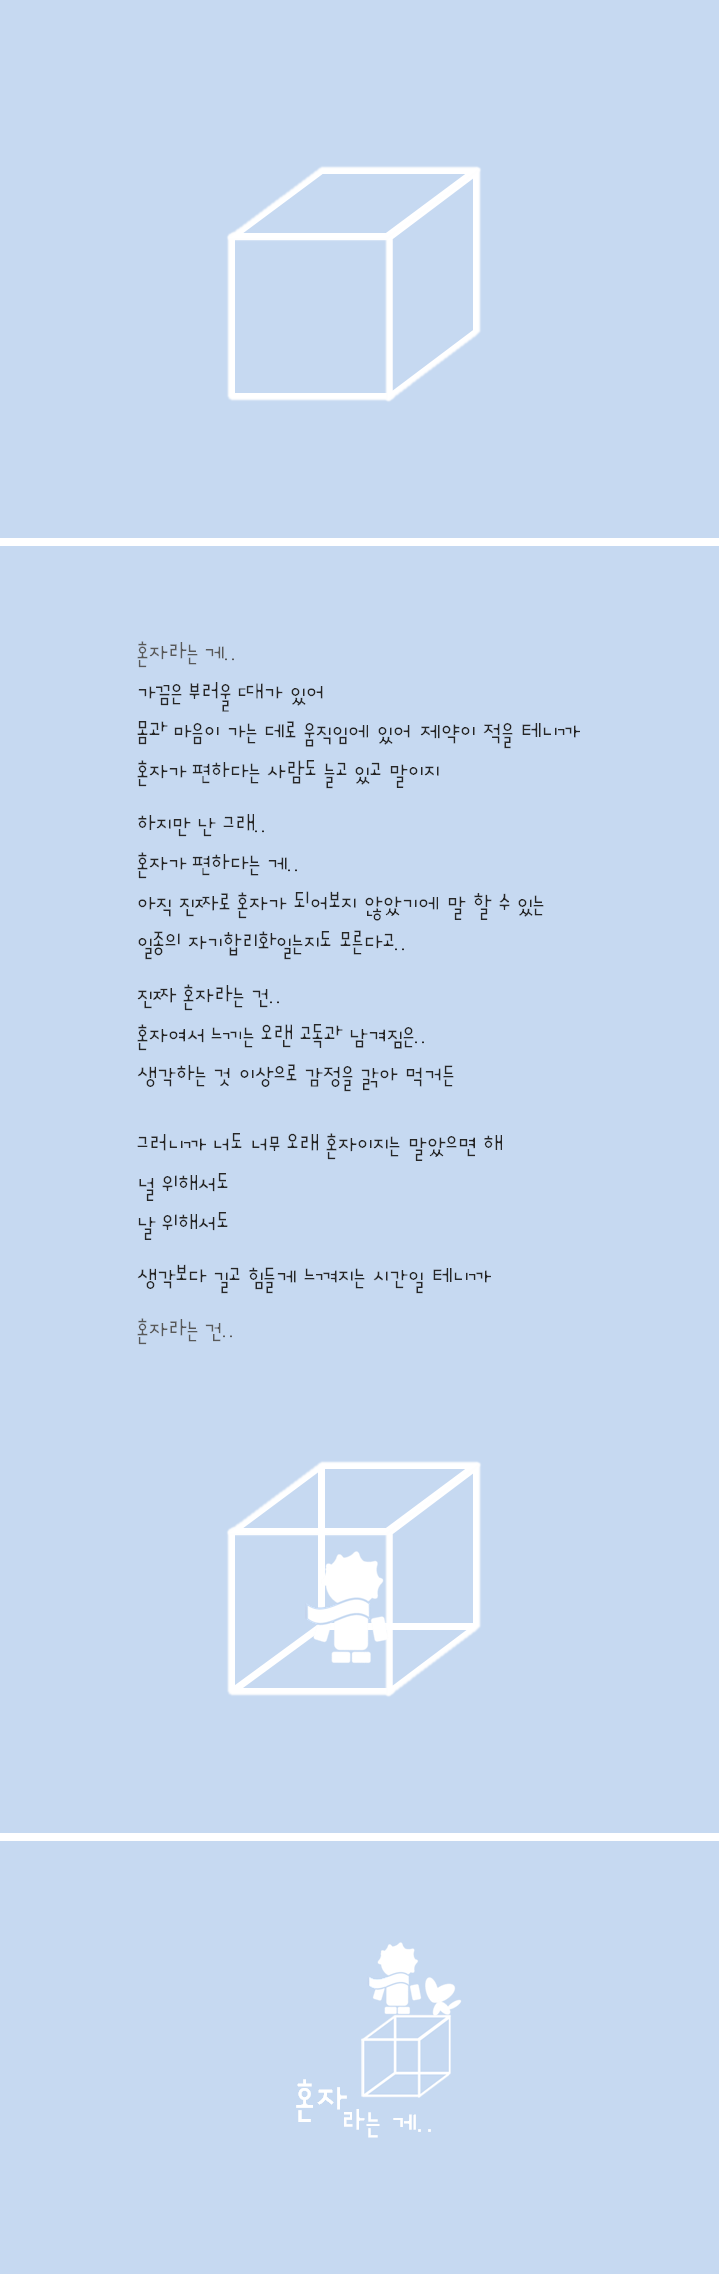 혼자라는 게..
가끔은 부러울 때가 있어
몸과 마음이 가는 데로 움직임에 있어 제약이 적을 테니까
혼자가 편하다는 사람도 늘고 있고 말이지
하지만 난 그래..
혼자가 편하다는 게..
아직 진짜로 혼자가 되어보지 않았기에 말 할 수 있는
일종의 자기합리화일는지도 모른다고..
진짜 혼자라는 건..
혼자여서 느끼는 오랜 고독과 남겨짐은..
생각하는 것 이상으로 감정을 갉아 먹거든
그러니까 너도 너무 오래 혼자이지는 말았으면 해
널 위해서도
날 위해서도
생각보다 길고 힘들게 느껴지는 시간일 테니까
혼자라는 건..
혼자라는 게..